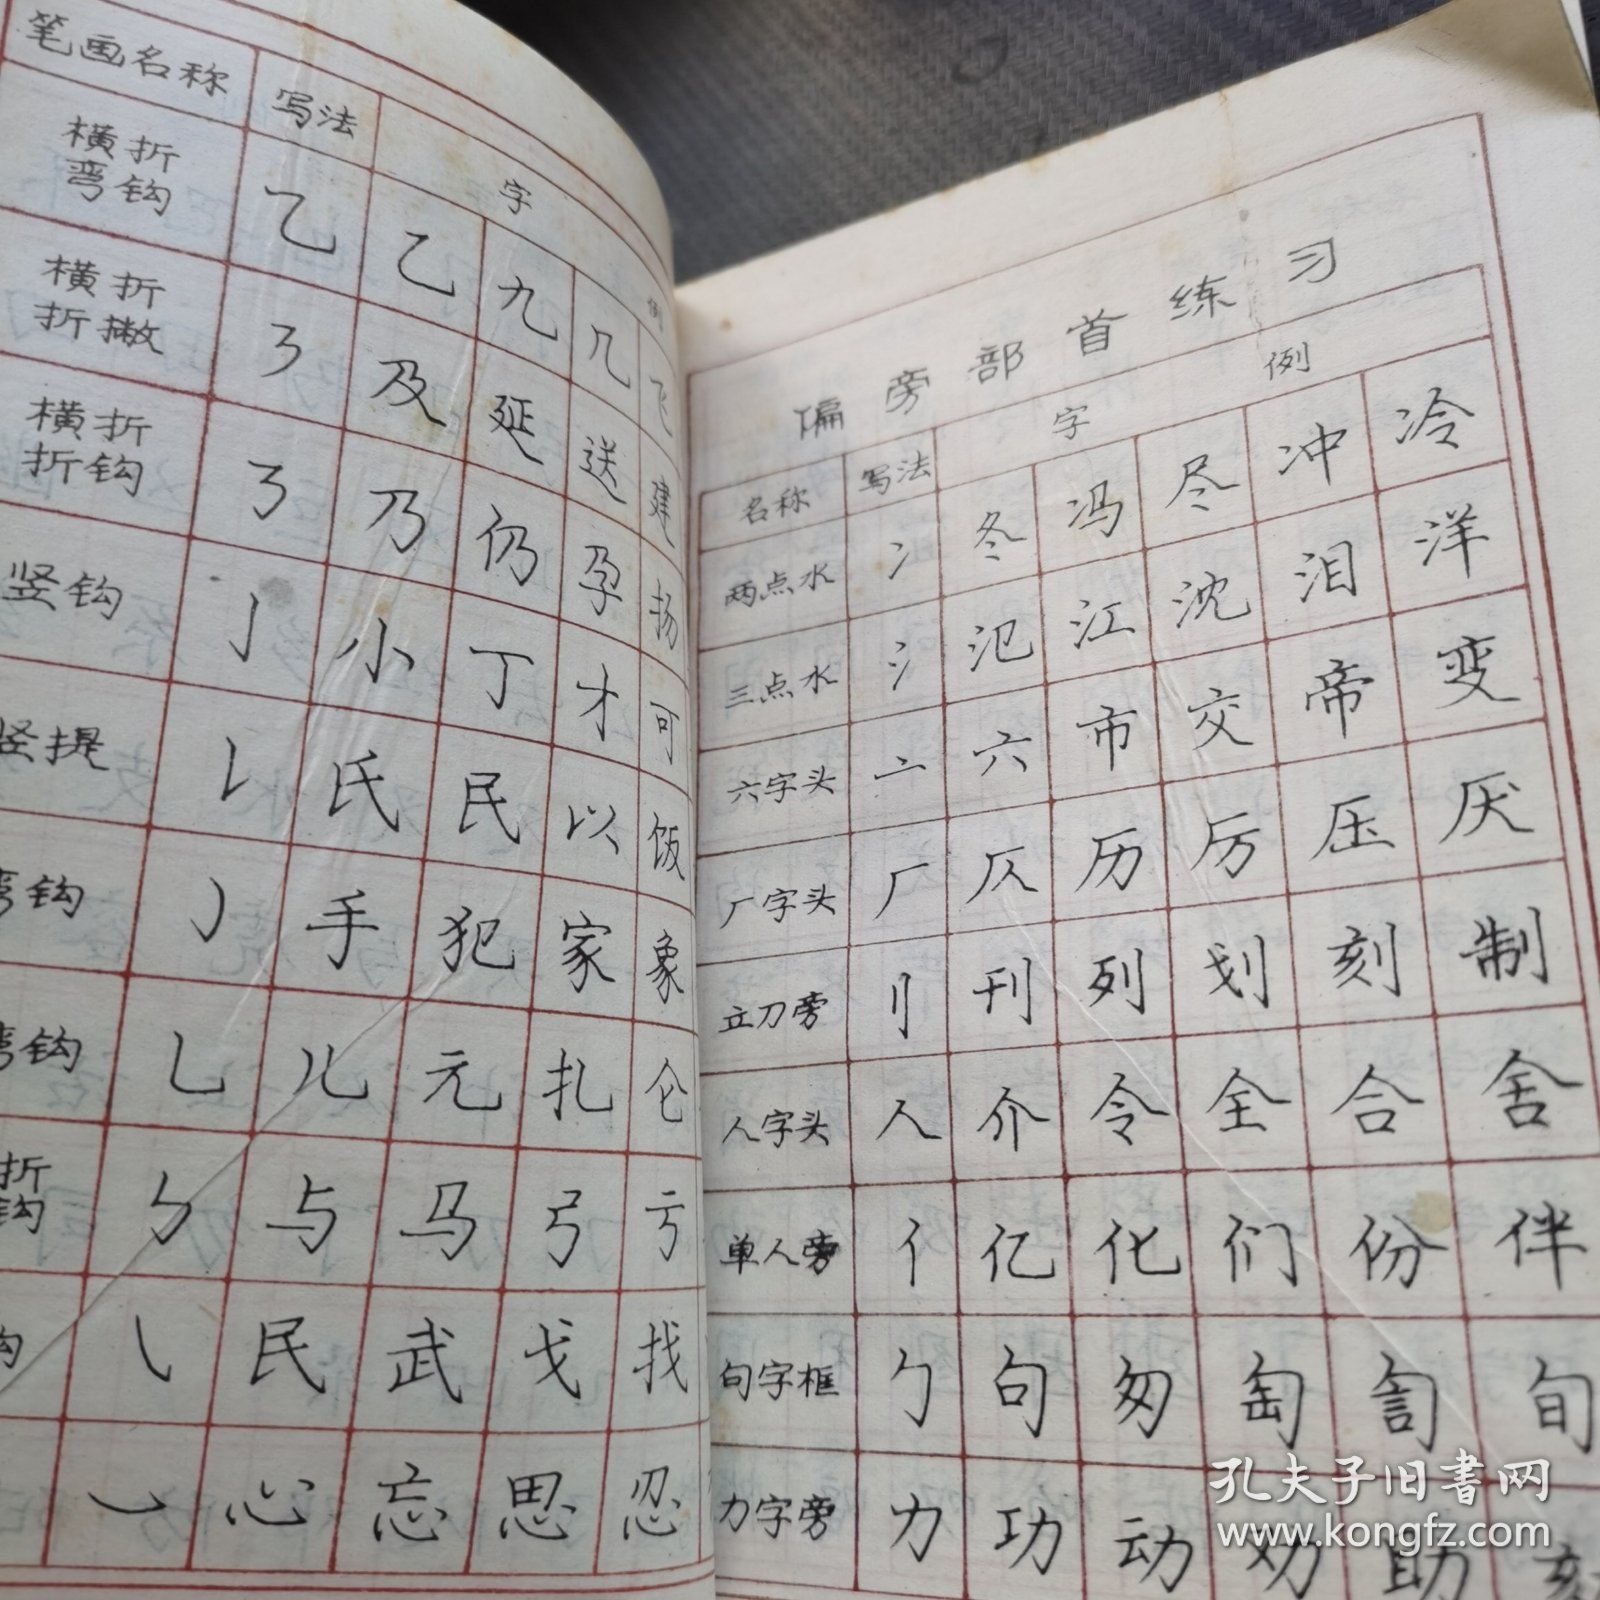 笔画名称 写法 字 例
横折弯钩 ㇈ 乙 九 几 飞
横折折撇 ㇋ 及 延 送 建
横折折钩 ㇡ 乃 仍 孕 扬
竖钩 亅 小 丁 才 可
竖提 𠄌 氏 民 以 饭
弯钩 ㇁ 手 犯 家 象
弯钩 乚 儿 元 扎 仑
折钩 ㇉ 与 马 弓 亏
钩 ㇂ 民 武 戈 找
㇃ 心 忘 思 忍
偏旁部首练习
名称 写法 字 例
两点水 冫 冬 冯 尽 冲 冷
三点水 氵 氾 江 沈 泪 洋
六字头 亠 六 市 交 帝 变
厂字头 厂 仄 历 厉 压 厌
立刀旁 刂 刊 列 划 刻 制
人字头 人 介 令 全 合 舍
单人旁 亻 亿 化 们 份 伴
句字框 勹 句 匆 匋 訇 旬
力字旁 力 功 动 劝 助
孔夫子旧书网
www.kongfz.com